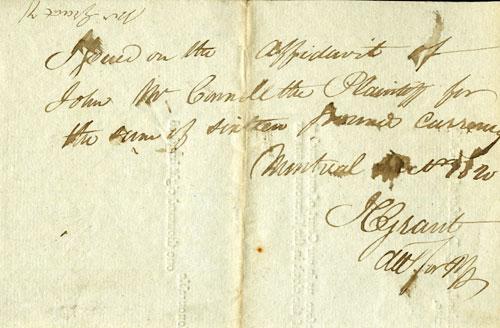 Issued on the Affidavit of
John McConnell the Plaintiff for
the sum of sixteen pounds Currency
Montreal 1820
JC Grant
Atty for Plff